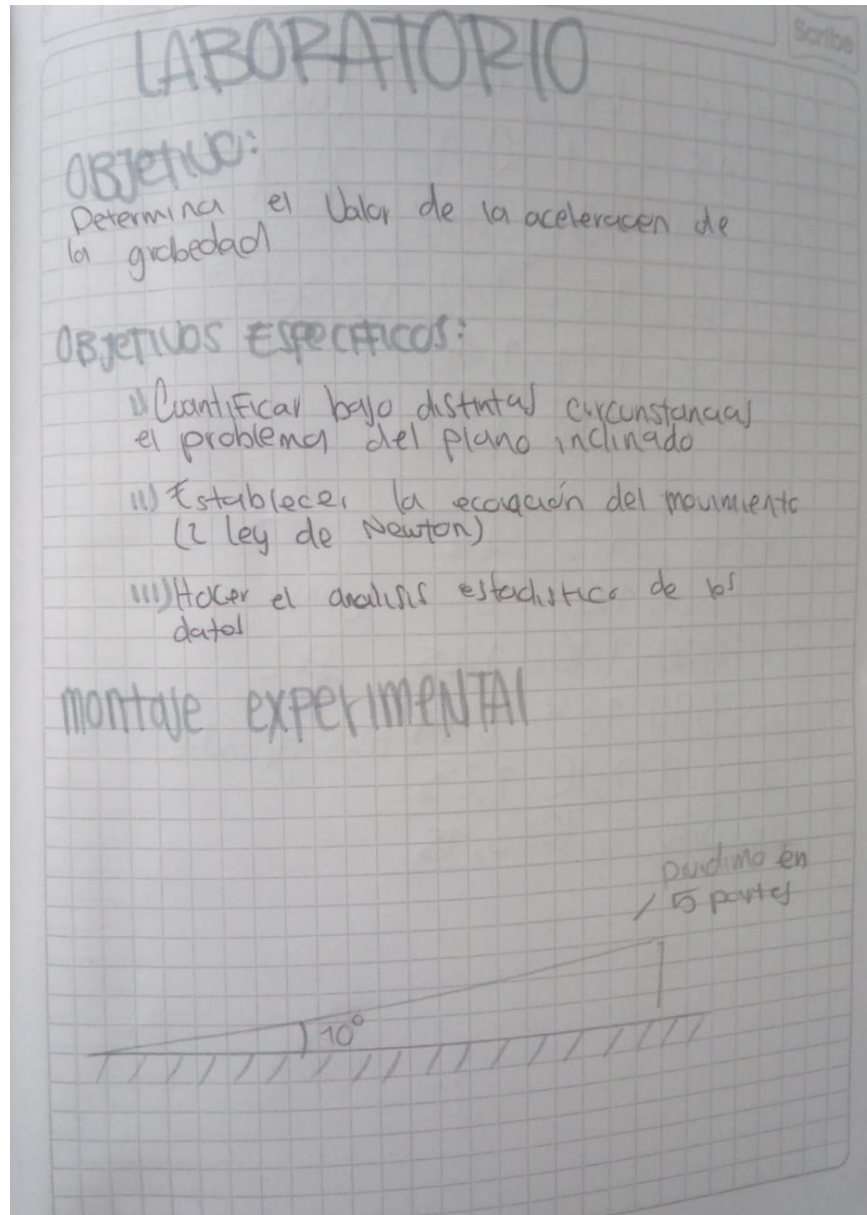 Scribe
LABORATORIO
OBJETIVO:
Determina el Valor de la aceleracen de
la grabedad
OBJETIVOS ESPECIFICOS:
I) Cuantificar bajo distintas circunstancias
el problema del plano inclinado
II) Establecer la ecuación del movimiento
(2 ley de Newton)
III) Hacer el analisis estadistico de los
datos
montaje experimENTAl
en
5 partes
10°